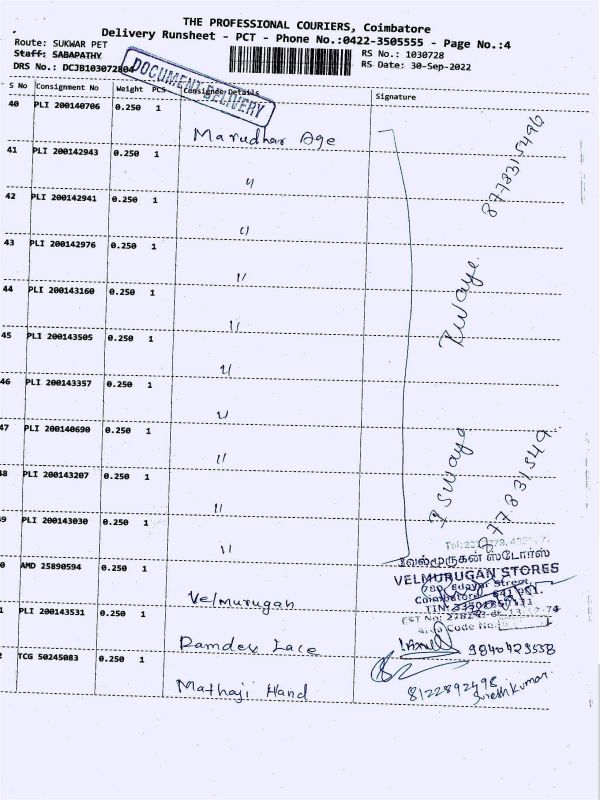 THE PROFESSIONAL COURIERS, Coimbatore
Delivery Runsheet - PCT - Phone No.:0422-3505555 - Page No.:4
Route: SUKWAR PET
RS No.: 1030728
Staff: SABAPATHY
RS Date: 30-Sep-2022
DRS No.: DCJB103072804
DOCUMENT DELIVERY
S No Consignment No Weight PCS Consignee Details Signature
40 PLI 200140706 0.250 1
Marudhar Age
8778315496
41 PLI 200142943 0.250 1
"
42 PLI 200142941 0.250 1
"
43 PLI 200142976 0.250 1
"
44 PLI 200143160 0.250 1
"
45 PLI 200143505 0.250 1
"
46 PLI 200143357 0.250 1
"
47 PLI 200140690 0.250 1
"
48 PLI 200143207 0.250 1
"
49 PLI 200143030 0.250 1
"
வேல்முருகன் ஸ்டோர்ஸ்
0 AMD 25890594 0.250 1
VELMURUGAN STORES
Velmurugan
Coimbatore
1 PLI 200143531 0.250 1
Area Code No:
Ramdev Lace
9840423538
2 TCG 50245083 0.250 1
Mathaji Hand
8122892498
Sureth Kumar